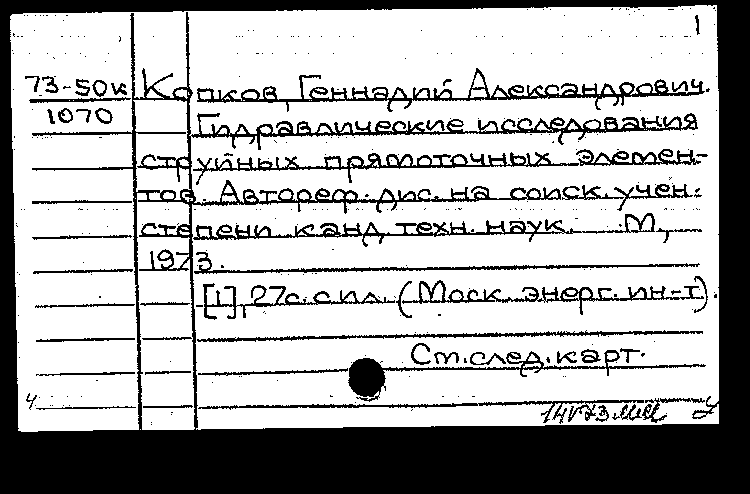 1
73-50к Копков, Геннадий Александрович.
1070 Гидравлические исследования
струйных прямоточных элемен-
тов. Автореф. дис. на соиск. учен.
степени канд. техн. наук. М.,
1973.
[1], 27с. с ил. (Моск. энерг. ин-т).
Ст. след. карт.
ч